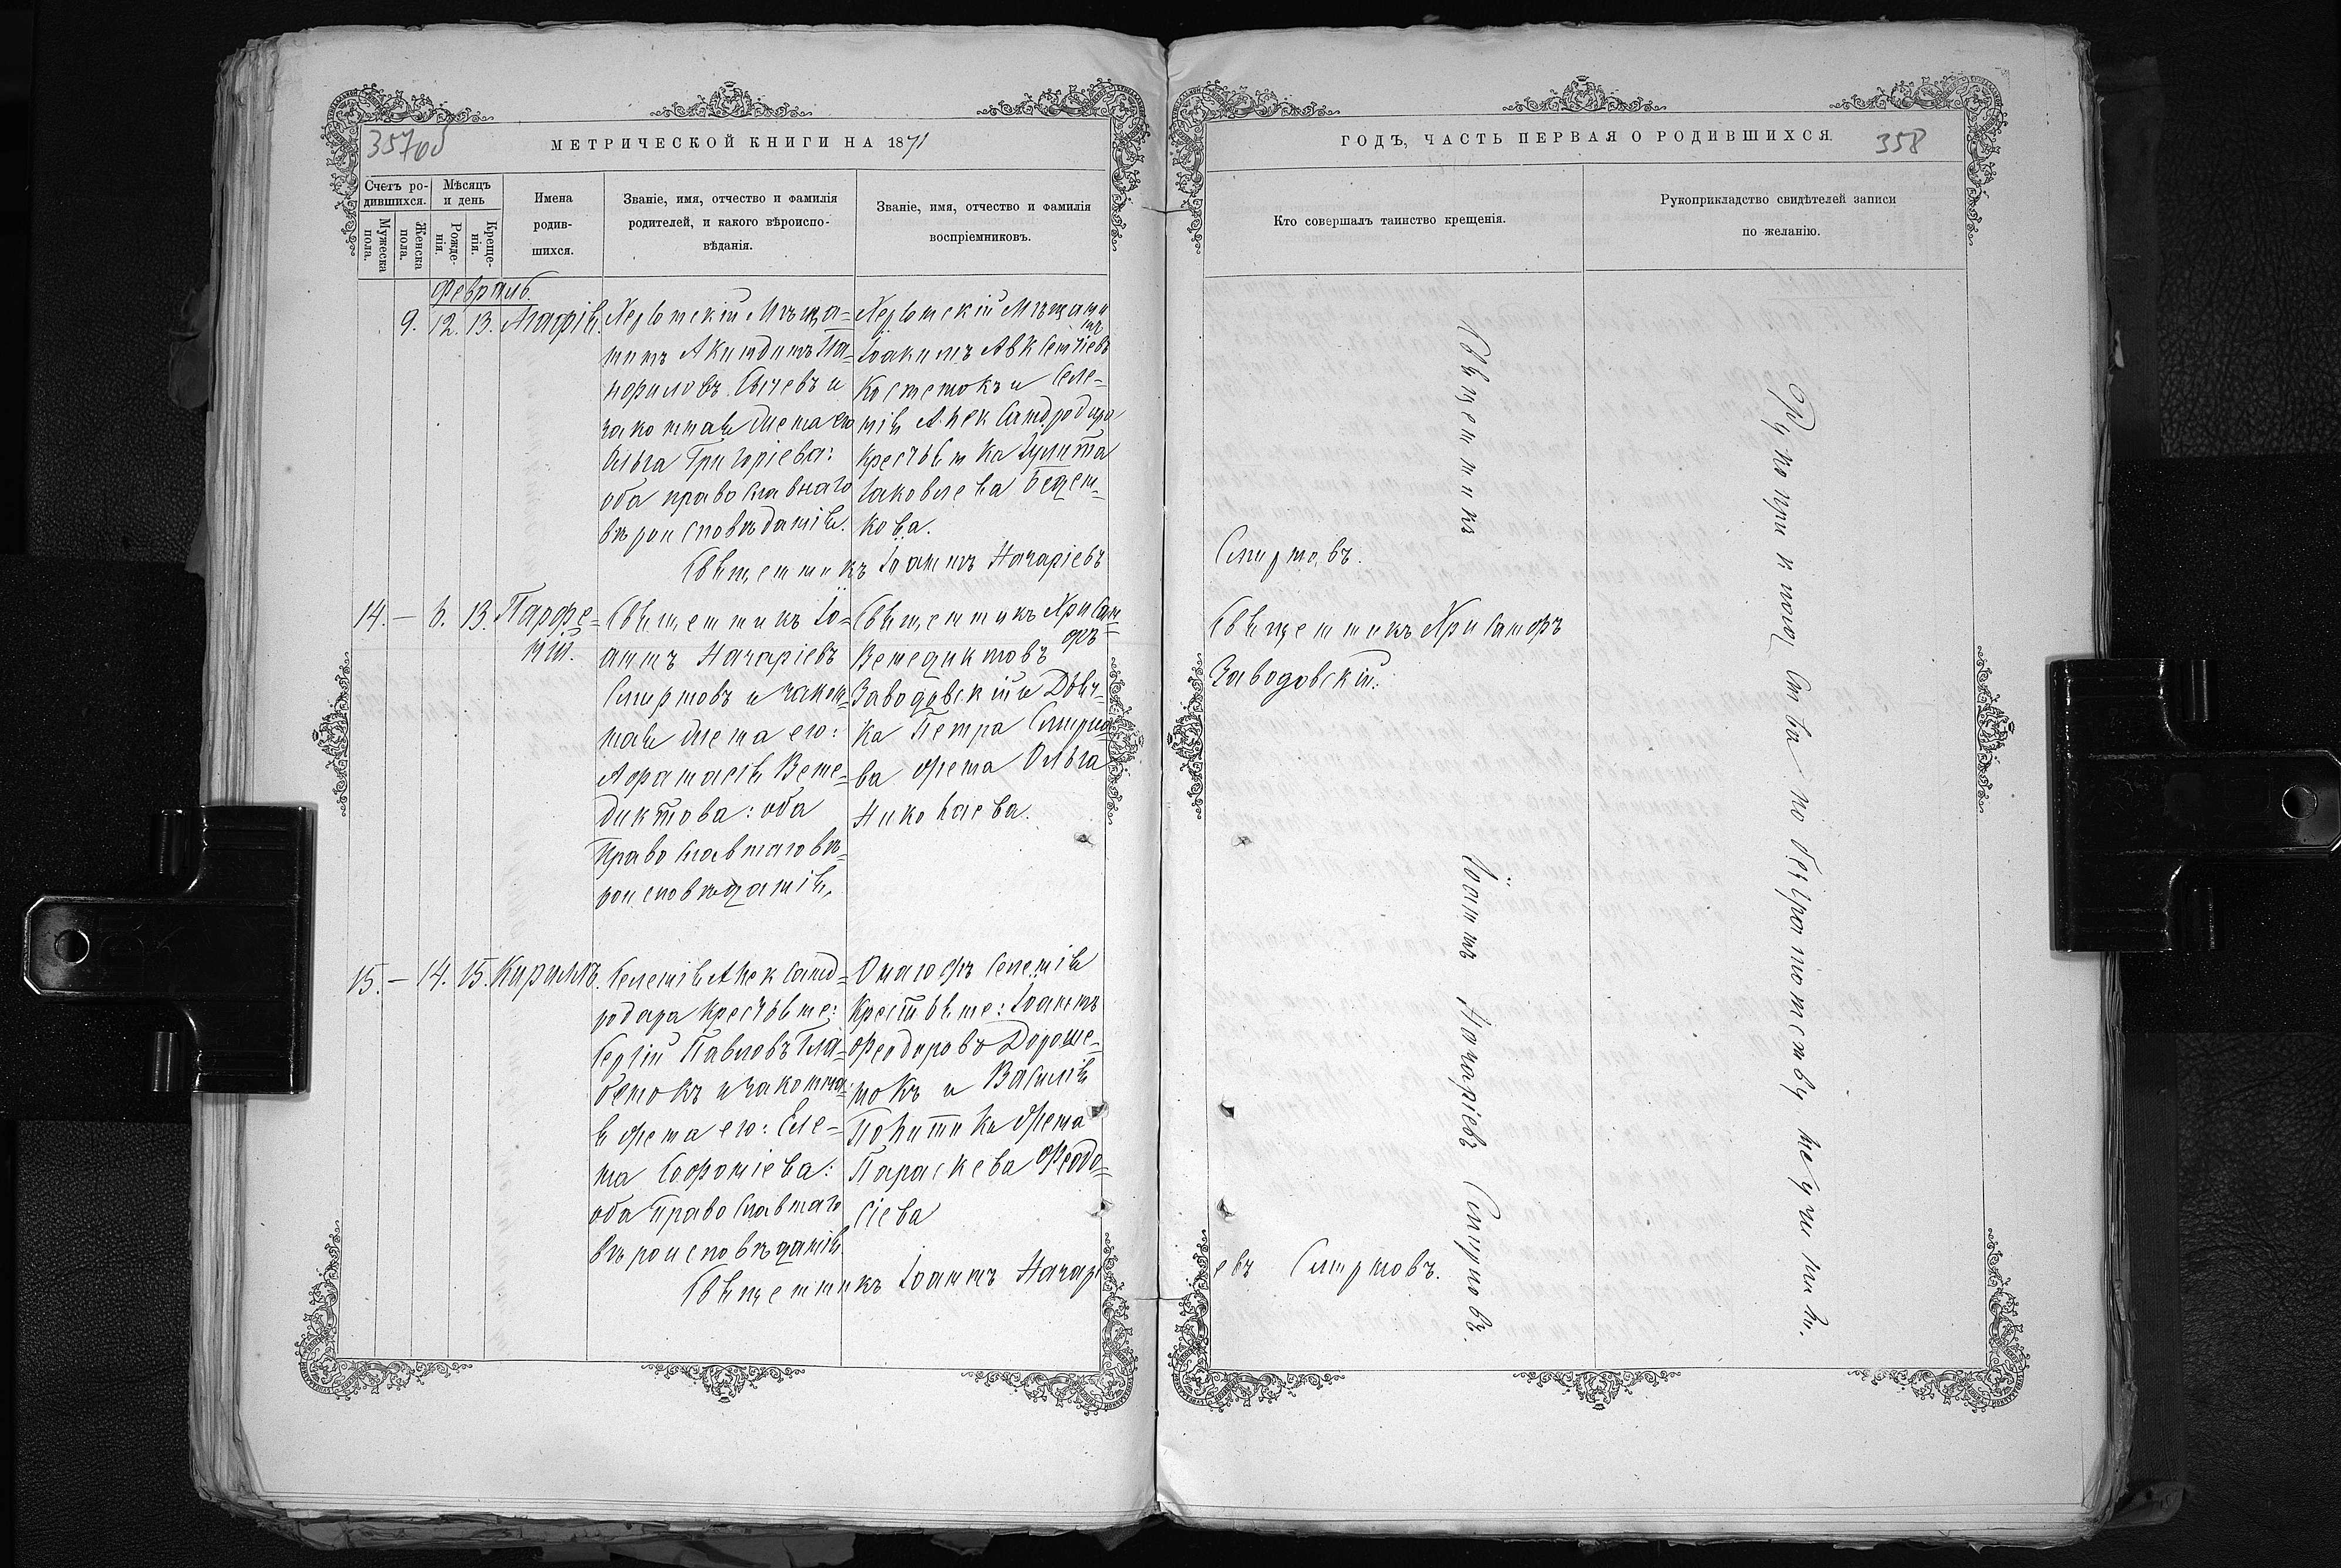 357об
МЕТРИЧЕСКОЙ КНИГИ НА 1871
Счетъ ро-
дившихся.
Мѣсяцъ
и день
Мужеска
пола.
Женска
пола.
Рожде-
нія.
Креще-
нія.
Имена
родив-
шихся.
Званіе, имя, отчество и фамилія
родителей, и какого вѣроиспо-
вѣданія.
Званіе, имя, отчество и фамилія
воспріемниковъ.
Февраль.
9. 12. 13. Агафія.
Херсонскій Мѣща=
нинъ Акиндинъ
Сычевъ и
законная жена его
Ольга Григоріева:
оба православнаго
вѣроисповѣданія.
Херсонскій Мѣщани
нъ
Іоакимъ Авксентіевъ
Костенокъ и Селе=
нія Александродара
крестьянка Іулита
Іаковлева
кова.
Священникъ Іоаннъ Назаріевъ
14. — 6. 13. Парфе=
ній.
Священникъ Іо=
аннъ Назаріевъ
Смирновъ и закон=
ная жена его:
Афанасія Вене=
диктова: оба
Православнаго вѣ=
роисповѣданія,
Священникъ Хрисан=
фъ
Венедиктовъ
Заводовскій и Дьяч=
ка Петра Смирно
ва жена Ольга
Николаева.
15. — 14. 15. Кириллъ.
Селенія Александ=
родара крестьяне:
Сергій Павловъ
и законна
я жена его: Еле=
на Софоніева:
оба Православнаго
вѣроисповѣданія.
Онагожъ Селенія
Крестьяне: Іоаннъ
Феодоровъ Дороше=
нокъ и Василія
жена
Параскева Феодо=
сіева
Священникъ Іоаннъ Назарі
ГОДЪ, ЧАСТЬ ПЕРВАЯ О РОДИВШИХСЯ.
358
Кто совершалъ таинство крещенія.
Рукоприкладство свидѣтелей записи
по желанію.
Смирновъ.
Священникъ Хрисанфъ
Заводовскій.
евъ Смирновъ.
Священникъ Іоаннъ Назаріевъ Смирновъ.
Рукоприкладства по безграмотству не учинили.